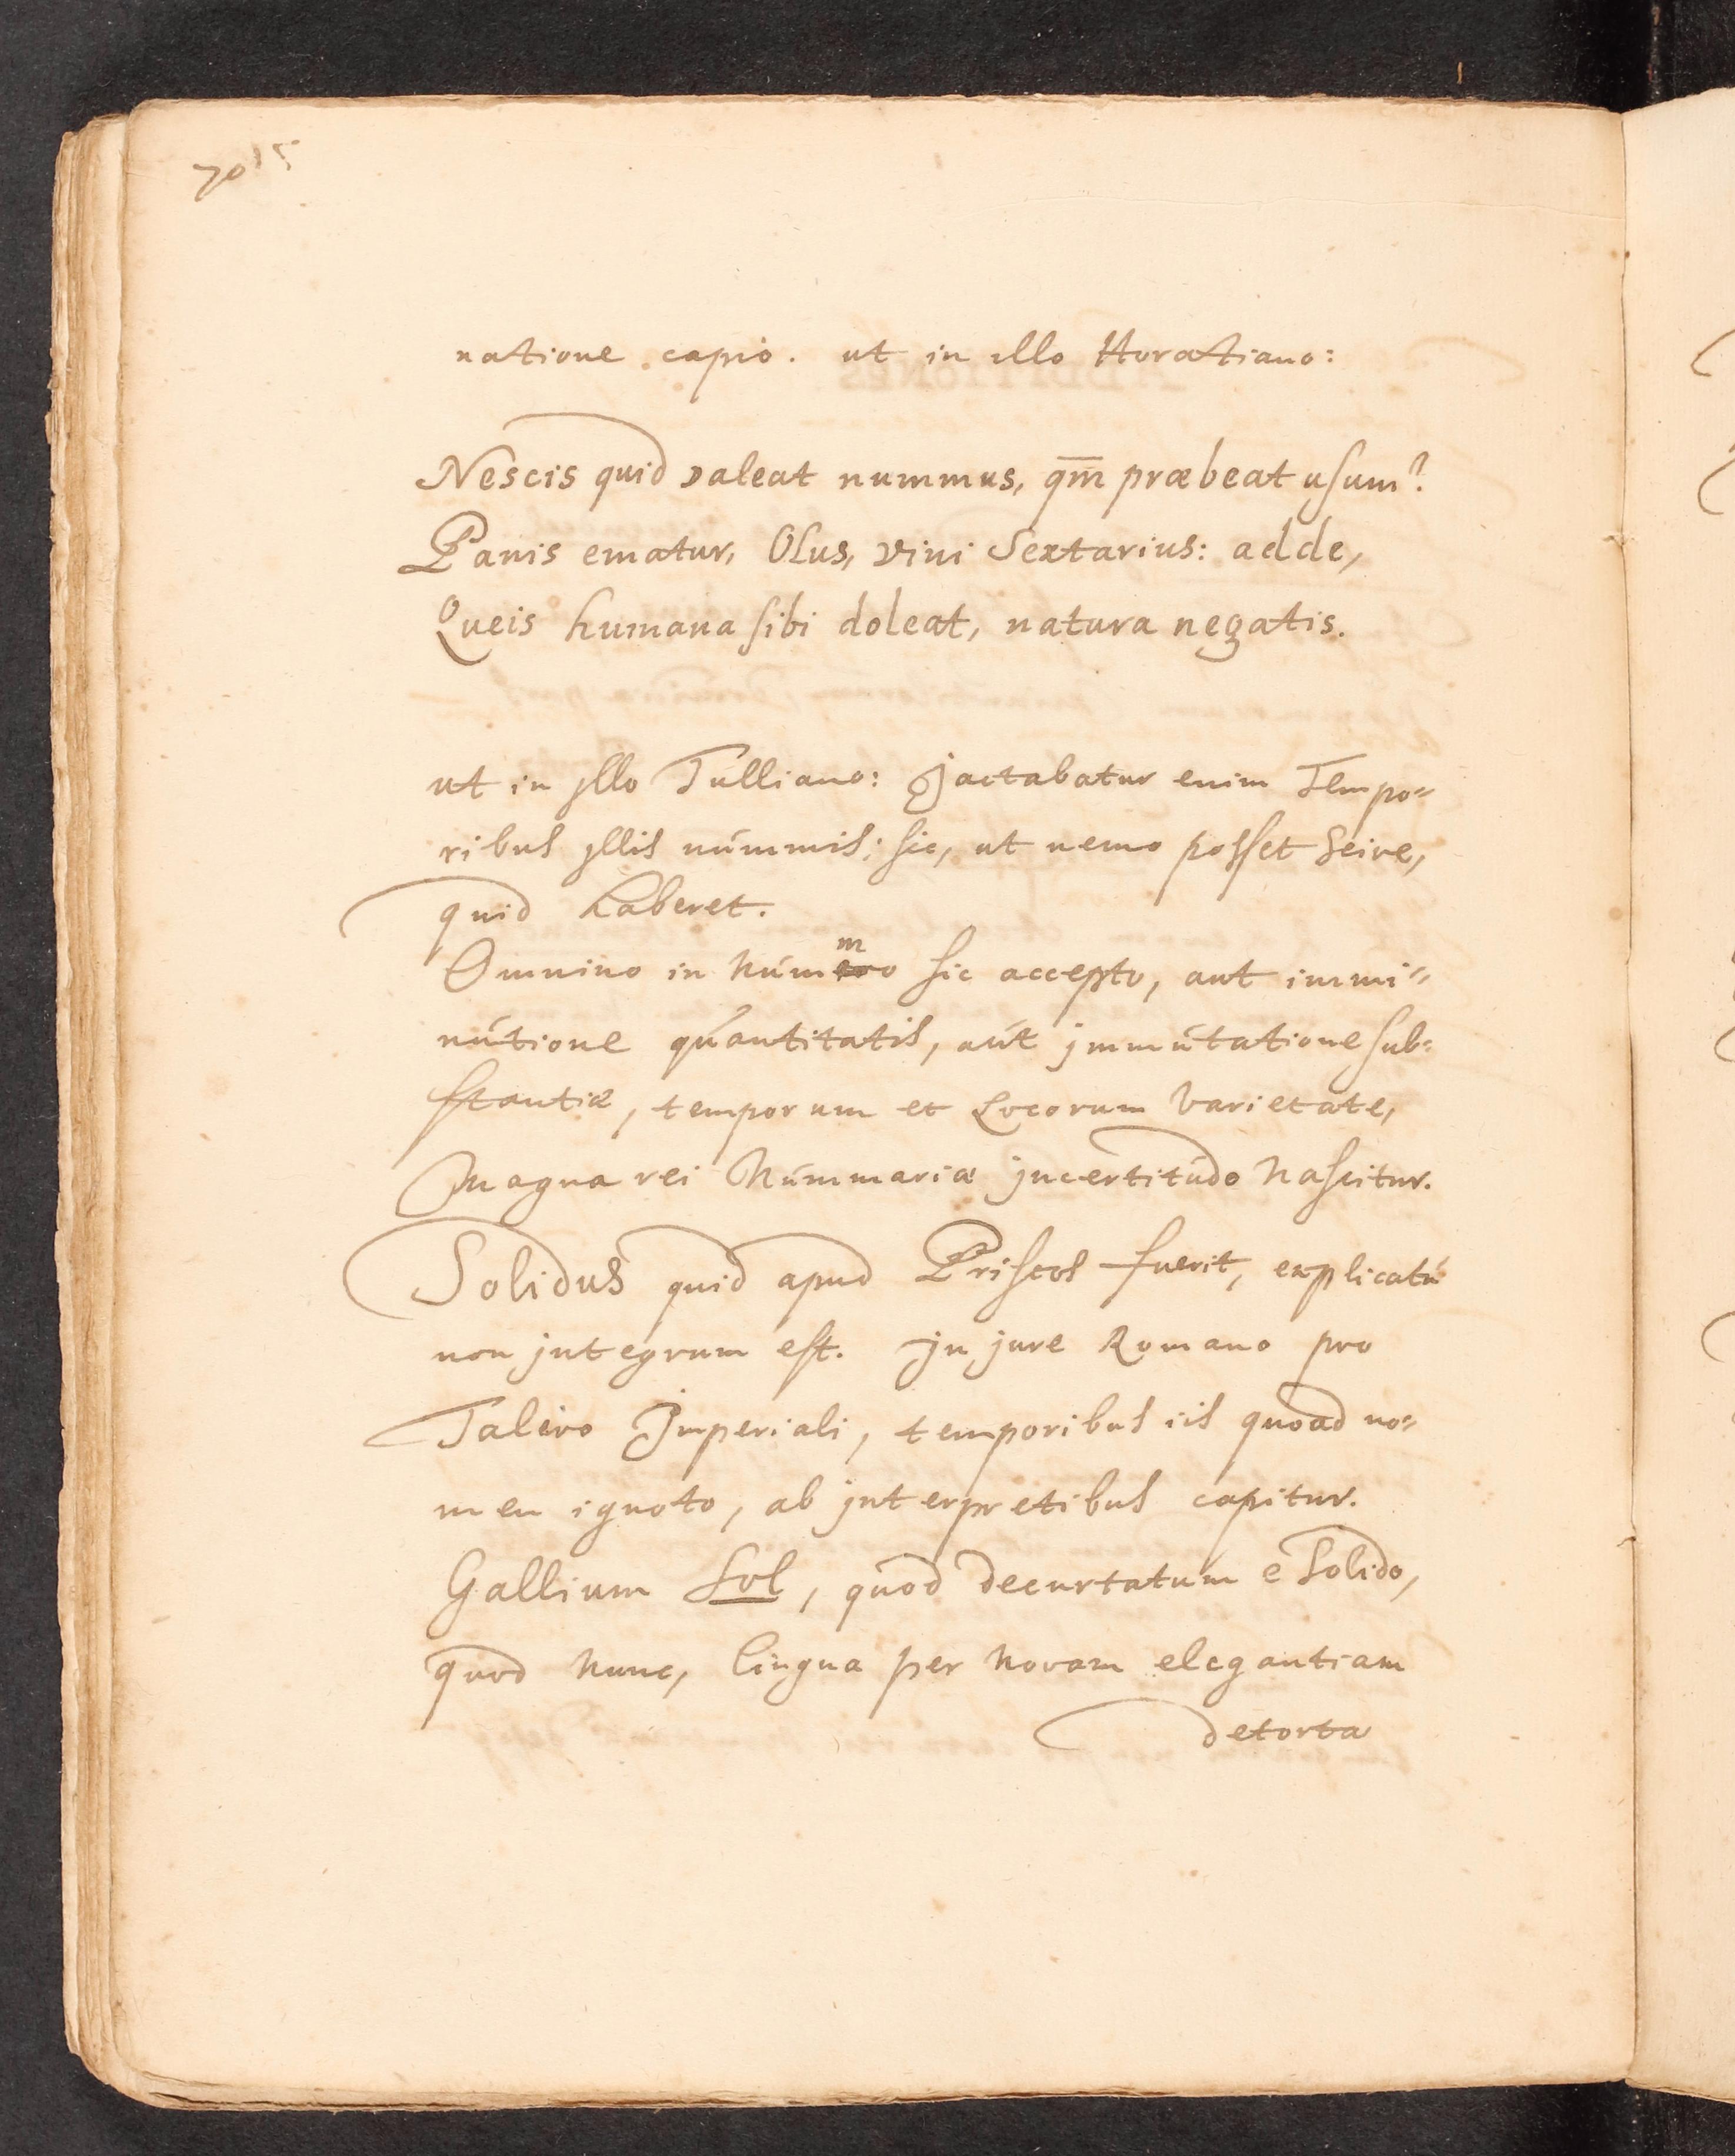 natione capio. ut in illo Horatiano:
Nescis quid valeat nummus, qm̅ præbeat usum?
Panis ematur, Olus, vini Sextarius: adde,
Queis humana sibi doleat, natura negatis.
ut in jllo Tulliano: Jactabatur enim Tempo=
ribus jllis nummis; sic, ut nemo posset scire,
quid haberet.
Omnino in Nummo sic accepto, aut immi=
nutione quantitatis, aut jmmutatione sub=
stantiæ, temporum et Locorum Varietate,
Magna rei Nummariæ jncertitudo Nascitur.
Solidus quid apud Priscos fuerit, explicatu
non jntegrum est. Jn jure Romano pro
Talero Jmperiali, temporibus iis quoad no=
men ignoto, ab jnterpretibus capitur.
Gallium Sol, quod decurtatum e Solido,
quod Nunc, lingua per Novam elegantiam
detorta